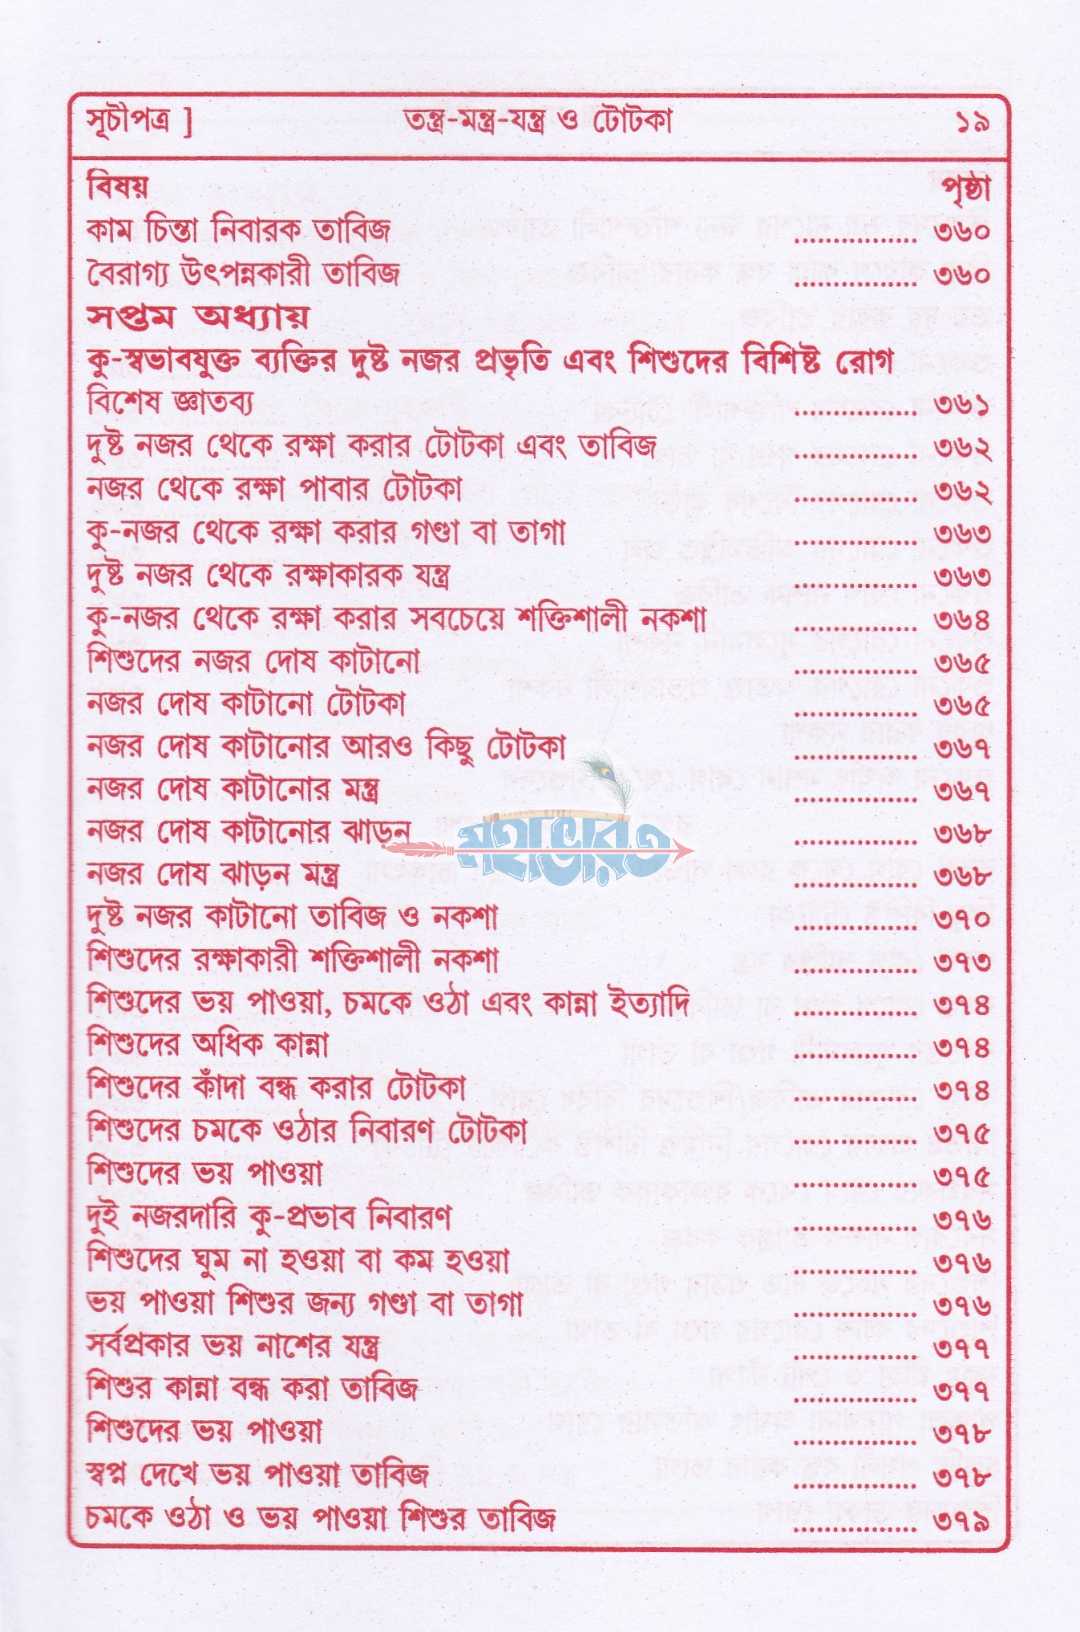 সূচীপত্র ] তন্ত্র-মন্ত্র-যন্ত্র ও টোটকা ১৯
বিষয় পৃষ্ঠা
কাম চিন্তা নিবারক তাবিজ ................ ৩৬০
বৈরাগ্য উৎপন্নকারী তাবিজ ................ ৩৬০
সপ্তম অধ্যায়
কু-স্বভাবযুক্ত ব্যক্তির দুষ্ট নজর প্রভৃতি এবং শিশুদের বিশিষ্ট রোগ
বিশেষ জ্ঞাতব্য ................ ৩৬১
দুষ্ট নজর থেকে রক্ষা করার টোটকা এবং তাবিজ ................ ৩৬২
নজর থেকে রক্ষা পাবার টোটকা ................ ৩৬২
কু-নজর থেকে রক্ষা করার গণ্ডা বা তাগা ................ ৩৬৩
দুষ্ট নজর থেকে রক্ষাকারক যন্ত্র ................ ৩৬৩
কু-নজর থেকে রক্ষা করার সবচেয়ে শক্তিশালী নকশা ................ ৩৬৪
শিশুদের নজর দোষ কাটানো ................ ৩৬৫
নজর দোষ কাটানো টোটকা ................ ৩৬৫
নজর দোষ কাটানোর আরও কিছু টোটকা ................ ৩৬৭
নজর দোষ কাটানোর মন্ত্র ................ ৩৬৭
নজর দোষ কাটানোর ঝাড়ন ................ ৩৬৮
মহাভারত
নজর দোষ ঝাড়ন মন্ত্র ................ ৩৬৮
দুষ্ট নজর কাটানো তাবিজ ও নকশা ................ ৩৭০
শিশুদের রক্ষাকারী শক্তিশালী নকশা ................ ৩৭৩
শিশুদের ভয় পাওয়া, চমকে ওঠা এবং কান্না ইত্যাদি ................ ৩৭৪
শিশুদের অধিক কান্না ................ ৩৭৪
শিশুদের কাঁদা বন্ধ করার টোটকা ................ ৩৭৪
শিশুদের চমকে ওঠার নিবারণ টোটকা ................ ৩৭৫
শিশুদের ভয় পাওয়া ................ ৩৭৫
দুই নজরদারি কু-প্রভাব নিবারণ ................ ৩৭৬
শিশুদের ঘুম না হওয়া বা কম হওয়া ................ ৩৭৬
ভয় পাওয়া শিশুর জন্য গণ্ডা বা তাগা ................ ৩৭৬
সর্বপ্রকার ভয় নাশের যন্ত্র ................ ৩৭৭
শিশুর কান্না বন্ধ করা তাবিজ ................ ৩৭৭
শিশুদের ভয় পাওয়া ................ ৩৭৮
স্বপ্ন দেখে ভয় পাওয়া তাবিজ ................ ৩৭৮
চমকে ওঠা ও ভয় পাওয়া শিশুর তাবিজ ................ ৩৭৯